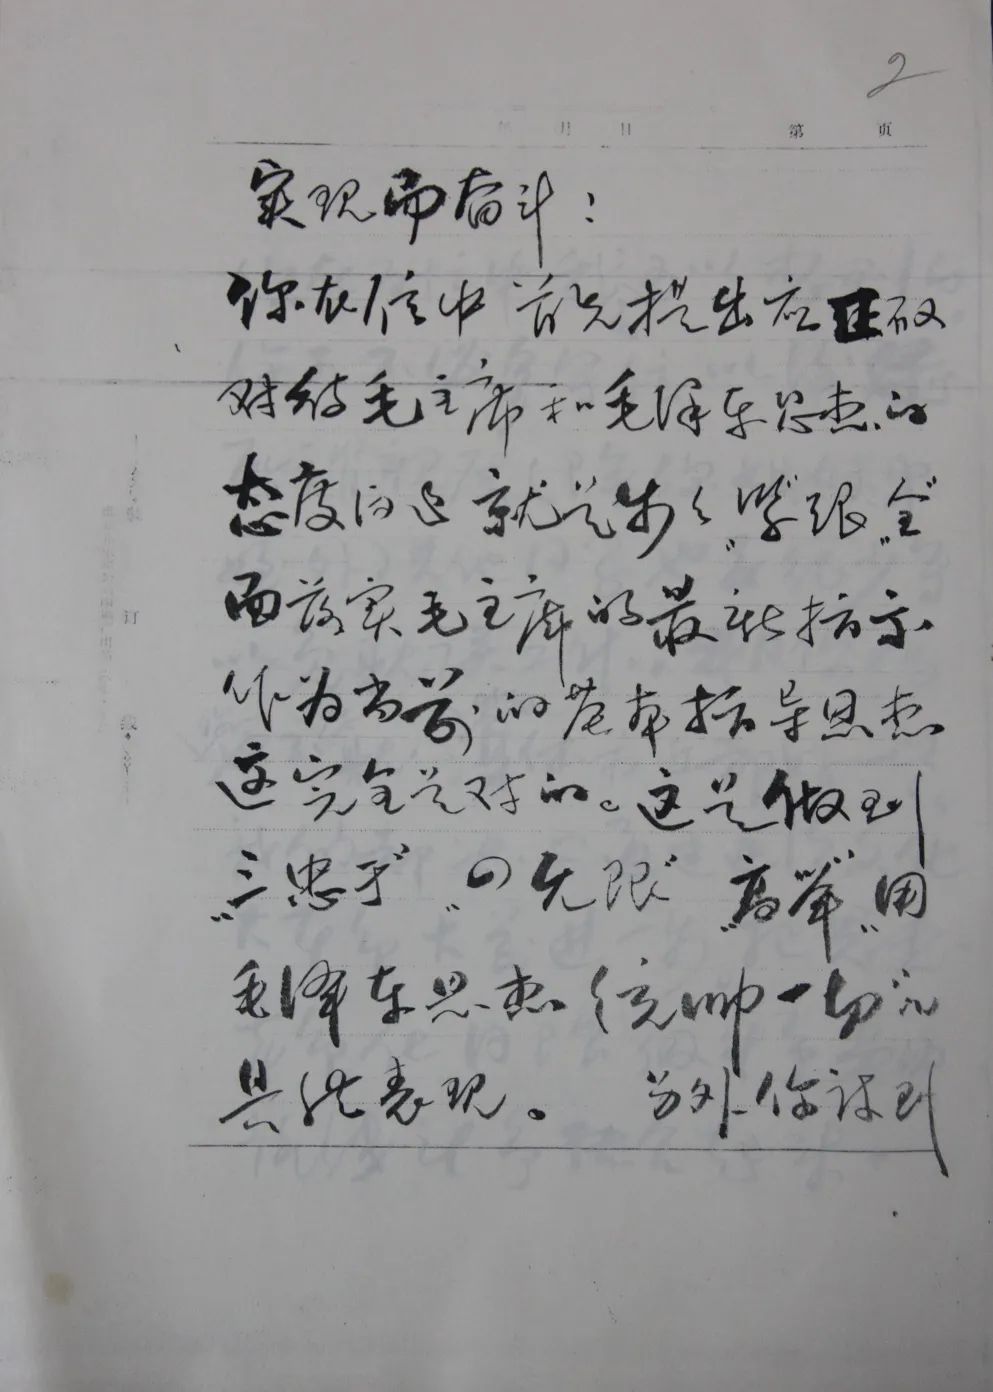 2
年 月 日 第 页
实现而奋斗：
你在信中首先提出应正确
对待毛主席和毛泽东思想的
态度问题就是步々"紧跟"全
面落实毛主席的最新指示
作为当前的基本指导思想
这完全是对的。这是做到
"三忠于""四无限""高举"用
毛泽东思想统帅一切的
具体表现。 另外你谈到
订